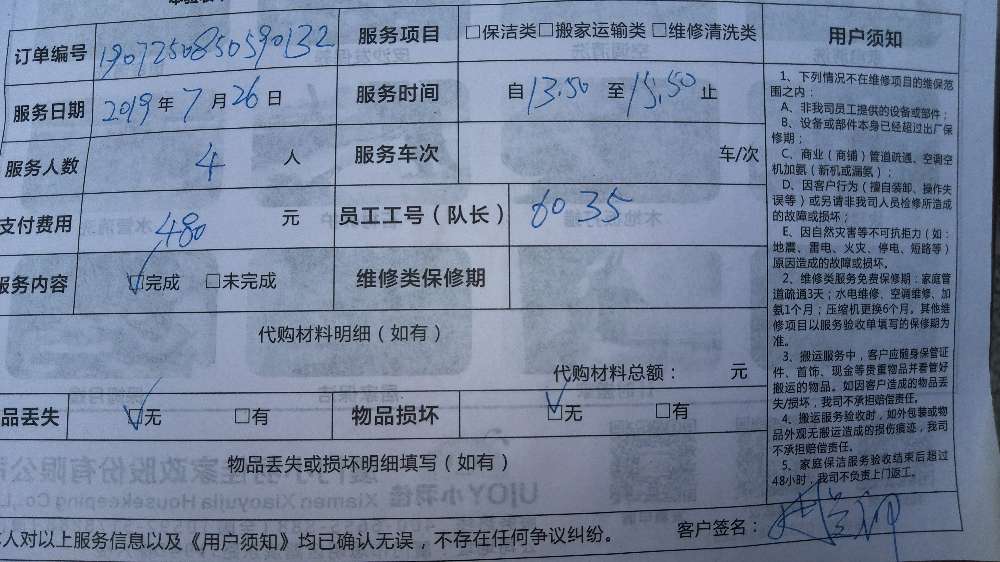 订单编号 190725085059​0132 服务项目 □保洁类□搬家运输类 □维修清洗类 用户须知
服务日期 2019年7月26日 服务时间 自13.50至15.50止
服务人数 4 人 服务车次 车/次
支付费用 480 元 员工工号（队长） 6035
服务内容 ☑完成 □未完成 维修类保修期
代购材料明细（如有）
代购材料总额： 元
品丢失 ☑无 □有 物品损坏 ☑无 □有
物品丢失或损坏明细填写（如有）
人对以上服务信息以及《用户须知》均已确认无误，不存在任何争议纠纷。 客户签名：
1、下列情况不在维修项目的维保范
围之内：
A、非我司员工提供的设备或部件；
B、设备或部件本身已经超过出厂保
修期；
C、商业（商铺）管道疏通、空调空
机加氨（新机或漏氨）；
D、因客户行为（擅自装卸、操作失
误等）或另请非我司人员检修所造成
的故障或损坏；
E、因自然灾害等不可抗拒力（如：
地震、雷电、火灾、停电、短路等）
原因造成的故障或损坏。
2、维修类服务免费保修期：家庭管
道疏通3天；水电维修、空调维修、加
氨1个月；压缩机更换6个月。其他维
修项目以服务验收单填写的保修期为
准。
3、搬运服务中，客户应随身保管证
件、首饰、现金等贵重物品并看管好
搬运的物品。如因客户造成的物品丢
失/损坏，我司不承担赔偿责任。
4、搬运服务验收时，如外包装或物
品外观无搬运造成的损伤痕迹，我司
不承担赔偿责任。
5、家庭保洁服务验收结束后超过
48小时，我司不负责上门返工。